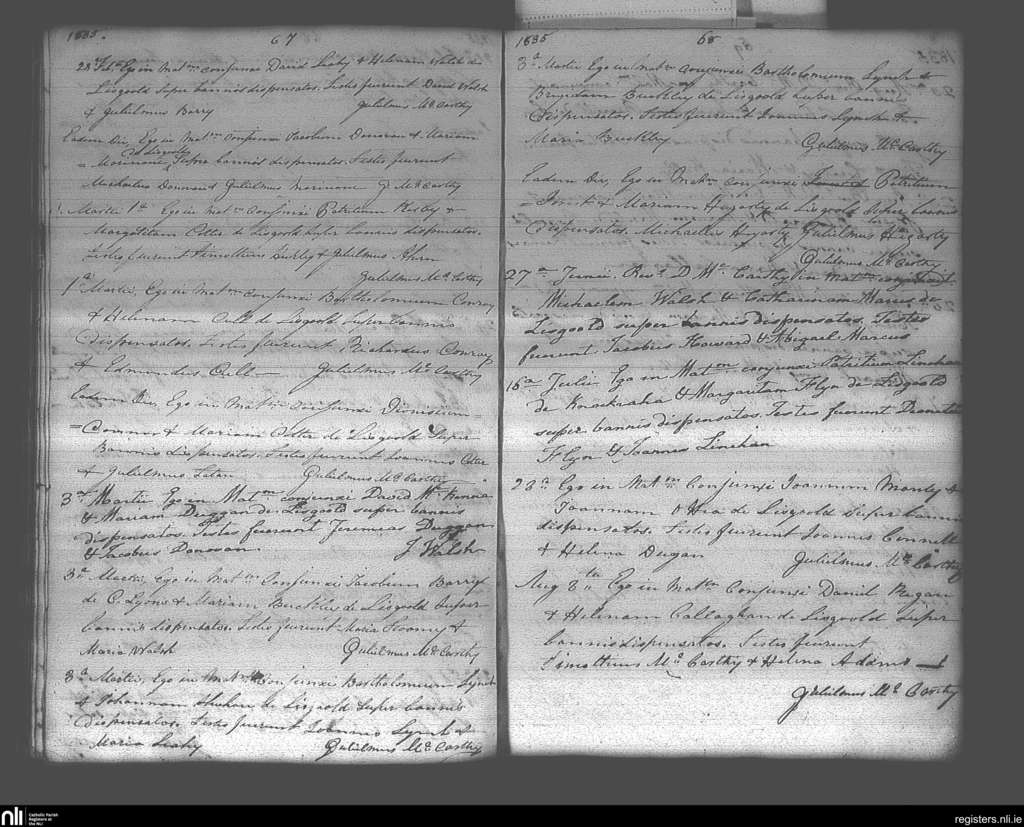 1835.
67
28 Feb. Ego in Mat.m conjunxi David Leahy & Helenam Walsh de
Lisgoold super bannis dispensatos. Testes fuerunt David Walsh
& Gulielmus Barry Gulielmus McCarthy
Eadem Die, Ego in Mat.m conjunxi Jacobum Donovan & Mariam
de Lisgoold
super bannis dispensatos. Testes fuerunt
Michalus Gulielmus G McCarthy
Martii 1a Ego in Mat.m conjunxi Patritium &
Margaritam Cotter de Lisgoold super bannis dispensatos.
Testes fuerunt Timotheus & Gulielmus Ahern
Gulielmus McCarthy
1a Martii, Ego in Mat.m conjunxi Bartholomeum Conroy
& Helenam de Lisgoold super bannis
dispensatos. Testes fuerunt Richardus Conroy
& Edmundus Gulielmus McCarthy
Eadem Die, Ego in Mat.m conjunxi Dionisium =
= Connor & Mariam Cotter de Lisgoold super
bannis dispensatos. Testes fuerunt Joannes Cotter
& Gulielmus Gulielmus McCarthy
3a Martii Ego in Mat.m conjunxi David
& Mariam Duggan de Lisgoold super bannis
dispensatos. Testes fuerunt Jeremias Duggan
& Jacobus Donovan. J Walsh
3a Martii, Ego in Mat.m Conjunxi Jacobum Barry
de C. Lyons & Mariam Buckley de Lisgoold super
bannis dispensatos. Testes fuerunt Maria &
Maria Walsh Gulielmus McCarthy
3a Martii, Ego in Mat.m Conjunxi Bartholomeum Lynch
& Johannam de Lisgoold super bannis
dispensatos. Testes fuerunt Joannes Lynch &
Maria Leahy Gulielmus McCarthy
1835
68
3a Martii Ego in Mat.m conjunxi Bartholomeum Lynch &
Brigidam Buckley de Lisgoold super bannis
dispensatos. Testes fuerunt Joannes Lynch &
Maria Buckley Gulielmus McCarthy
Eadem Die, Ego in Mat.m conjunxi Patritium
& Mariam Hegarty de Lisgoold super bannis
dispensatos. Michaelus Hegarty & Gulielmus Hegarty
Gulielmus McCarthy
27a Junii, Revs. D. McCarthy in Mat.m conjunxit
Michaelem Walsh & Catharinam Marcus de
Lisgoold super bannis dispensatos. Testes
fuerunt Jacobus Howard & Abigael Marcus
15a Julii Ego in Mat.m conjunxi Patritium Linehan
de Knockraha & Margaritam Flyn de Lisgoold
super bannis dispensatos. Testes fuerunt
Flyn & Joannes Linehan
23a Ego in Mat.m Conjunxi Joannem &
Joannam de Lisgoold super bannis
dispensatos. Testes fuerunt Joannes Connell
& Helena Dugan Gulielmus McCarthy
Aug 8ta Ego in Mat.m Conjunxi Daniel Regan
& Helenam Callaghan de Lisgoold super
bannis dispensatos. Testes fuerunt
Timotheus McCarthy & Helena Adams
Gulielmus McCarthy
nli
Catholic Parish
Registers at
the NLI
registers.nli.ie